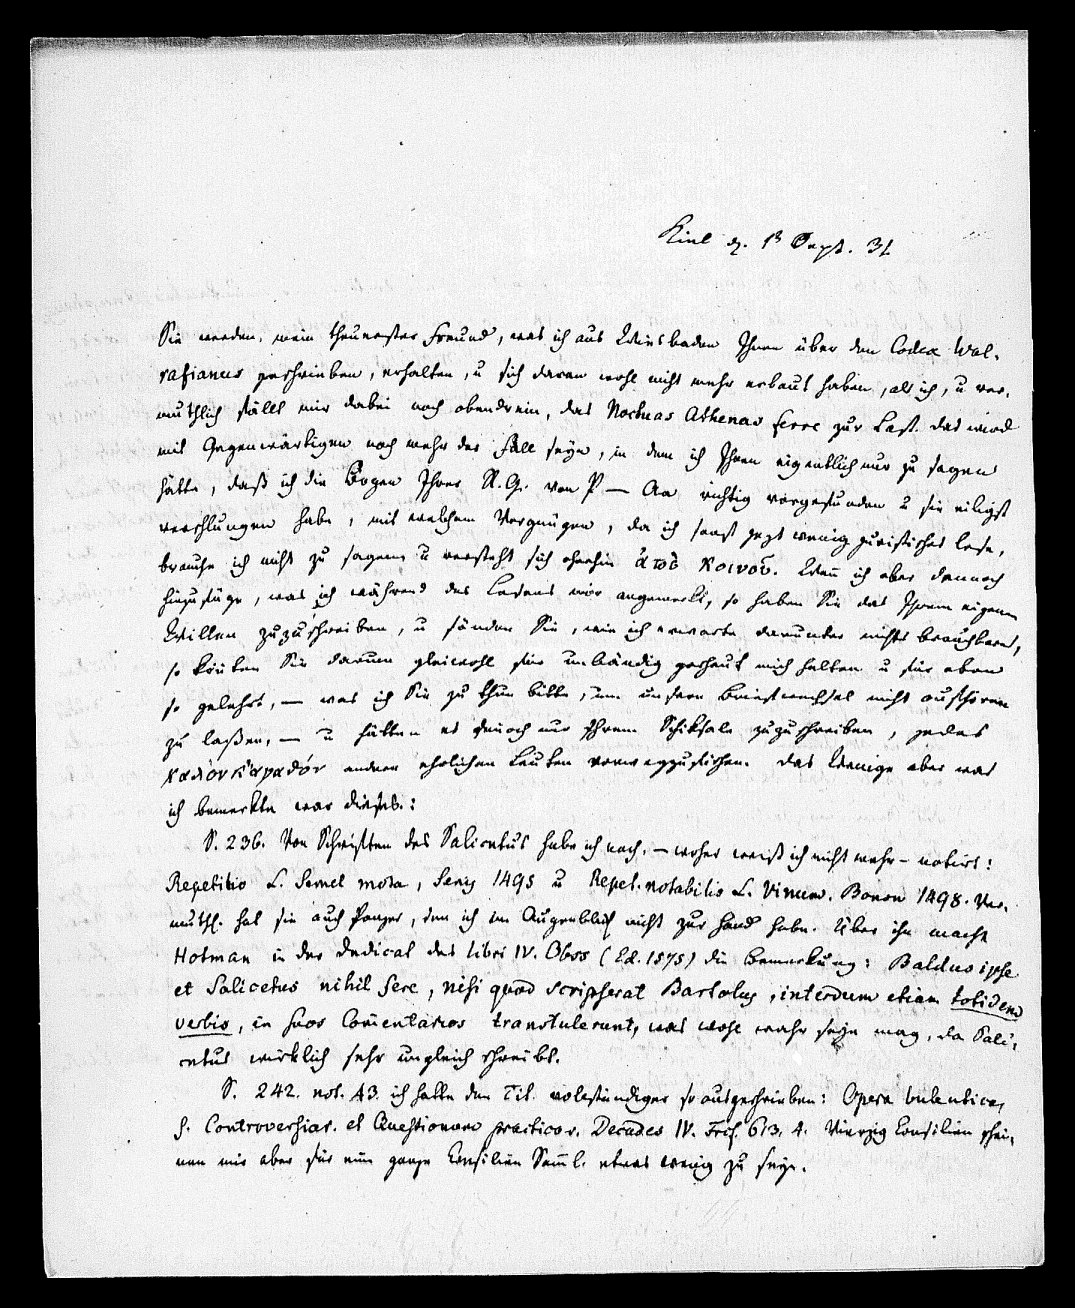 Kiel d. 13 Sept. 31
Sie werden, mein theuerster Freund, was ich aus Wiesbaden Ihnen über den Codex Wal-
rafianus geschrieben, erhalten, u sich daran wohl nicht mehr erbaut haben, als ich, u ver-
muthlich fällt mir dabei noch obendrein, das Noctuas Athenas ferre zur Last. Das wird
mit Gegenwärtigem noch mehr der Fall seyn, in dem ich Ihnen eigentlich nur zu sagen
hätte, daß ich die Bogen Ihrer R. G. von P — Aa richtig vorgefunden u sie eiligst
verschlungen habe; mit welchem Vergnügen, da ich sonst jezt wenig juristisches lese,
brauche ich nicht zu sagen u versteht sich ohnehin ἀπὸ κοινοῦ. Wenn ich aber dennoch
hinzufüge, was ich während des Lesens mir angemerkt, so haben Sie das Ihrem eignen
Willen zuzuschreiben, u fänden Sie, wie ich erwarte darunter nichts brauchbares,
so könten Sie darum gleichwohl für unbändig gescheut mich halten u für eben
so gelehrt, — was ich Sie zu thun bitte, um unsern Briefwechsel nicht aufhören
zu laßen, — u hätten es dennoch nur Ihrem Schiksale zuzuschreiben, jedes
καλὸν κἀγαθόν andern ehrlichen Leuten vorwegzufischen. Das Wenige aber was
ich bemerkte war dieses:
S. 236. Von Schriften des Salicetus habe ich noch, — woher weiß ich nicht mehr — notirt:
Repetitio L. Semel mora, Senis 1495 u Repet. notabilis L. Vinum. Bonon 1498. Ver-
muthl. hat sie auch Panzer, den ich im Augenblick nicht zur Hand habe. Über ihn macht
Hotman in der Dedicat des libri IV. Obss (Ed. 1575) die Bemerkung: Baldus ipse
et Salicetus nihil fere, nisi quod scripserat Bartolus, interdum etiam totidem
verbis, in suos Comentarios transtulerunt, was wohl wahr seyn mag, da Sali-
cetus wirklich sehr ungleich schreibt.
S. 242. not. 43. ich hatte den Tit. vollständiger so ausgeschrieben: Opera
s. Controversiar. et Quaestionum practicar. Decades IV. Frcf. 613. 4. Vierzig Consilien schei-
nen mir aber für eine ganze Consilien Saml. etwas wenig zu seyn.